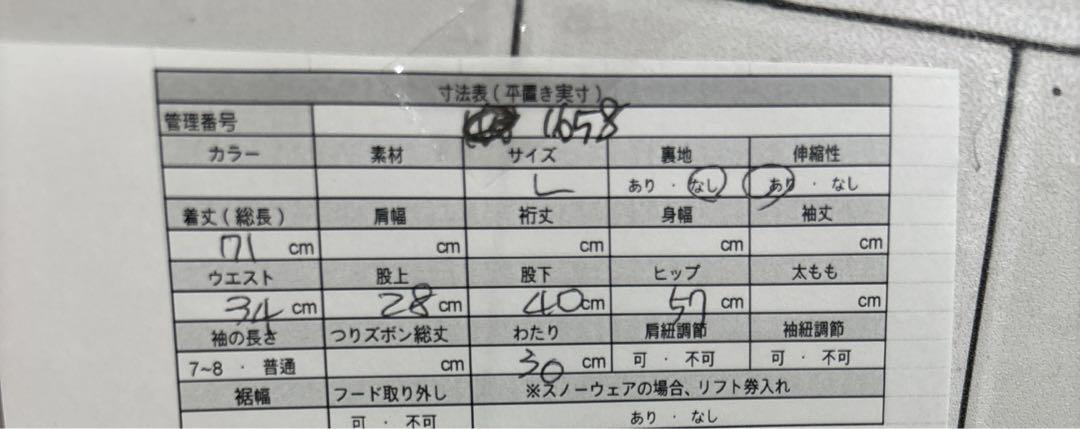 寸法表(平置き実寸)
管理番号 1658
カラー 素材 サイズ 裏地 伸縮性
L あり ・ なし あり ・ なし
着丈(総長) 肩幅 裄丈 身幅 袖丈
71 cm cm cm cm cm
ウエスト 股上 股下 ヒップ 太もも
34 cm 28 cm 40 cm 57 cm cm
袖の長さ つりズボン総丈 わたり 肩紐調節 袖紐調節
7~8 ・ 普通 cm 30 cm 可 ・ 不可 可 ・ 不可
裾幅 フード取り外し ※スノーウェアの場合、リフト券入れ
可 ・ 不可 あり ・ なし